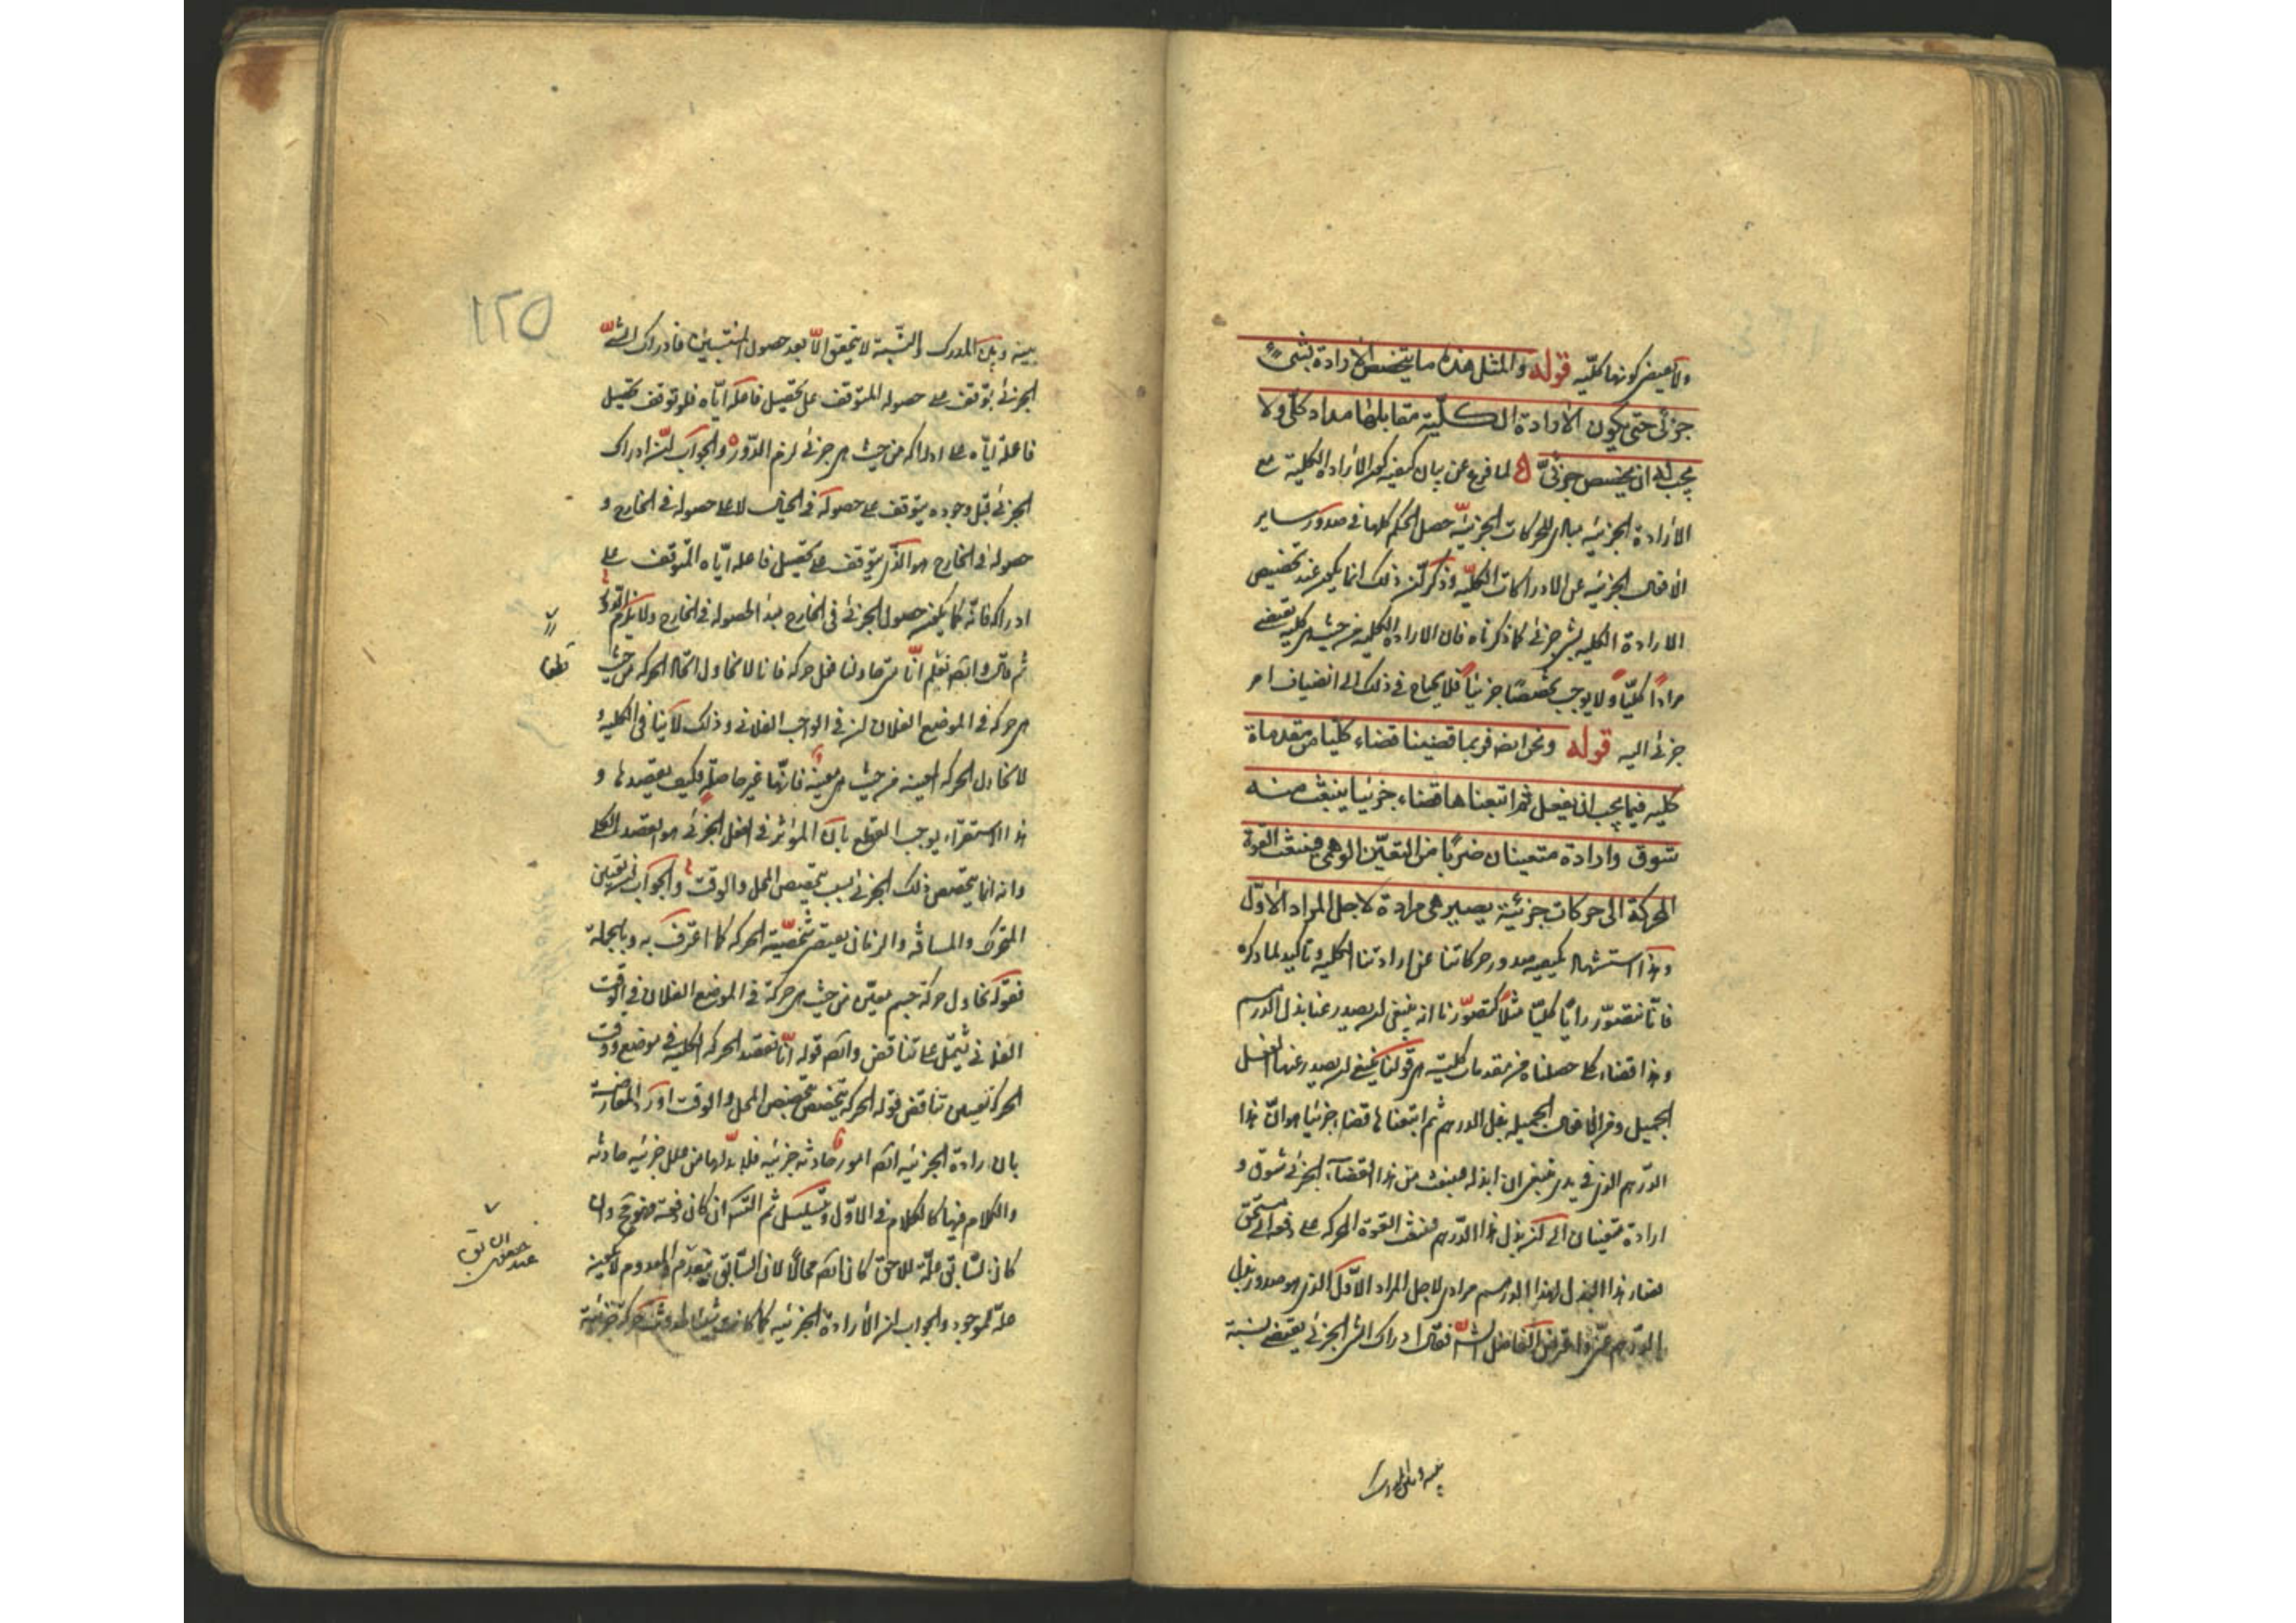 ولا يتغير كونها كلية قوله والمثل هذه ما يتخصص الارادة بشيء
جزئي حتى يكون الارادة الكلية مقابلها مراد كلي ولا
يجب ان يتخصص جزئي لما فرغ عن بيان كيفية الارادة الكلية مع
الارادة الجزئية مبادي للحركات الجزئية حصل الحكم كليا في صدور ساير
الافعال الجزئية عن الادراكات الكلية وذكر ان ذلك انما يكون عند تخصيص
الارادة الكلية بشيء جزئي كما ذكرناه فان الارادة الكلية من حيث هي كلية يقتضي
مرادا كليا ولا يوجب تخصصا جزئيا فلا يحتاج في ذلك الى انضياف امر
جزئي اليه قوله ونحن ايضا فربما قضينا قضاء كليا من مقدماة
كليه فيما يجب ان يفعل ثم اتبعناها قضاء جزئيا ينبعث منه
شوق وارادة متعينان ضربا من التعين الوهمي فينبعث القوة
المحركة الى حركات جزئية يصير هي مرادة لاجل المراد الاول
وهذا استشهاد بكيفية صدور حركاتنا عن ارادتنا الكلية وتاكيد لما ذكره
فانا نتصور رايا كليا مثلا كتصورنا انه ينبغي ان يصدر عنا بذل الدرهم
وهذا قضاء كلي حصلناه من مقدمات كلية هي قولنا ينبغي ان يصدر عنا الفعل
الجميل ومن الافعال الجميلة بذل الدرهم ثم اتبعناها قضاء جزئيا هو ان هذا
الدرهم الذي في يدي ينبغي ان ابذله فينبعث من هذا القضاء الجزئي شوق و
ارادة متعينان الى بذل هذا الدرهم فينبعث القوة المحركة على دفعه الى مستحق
فصار هذا البذل لهذا الدرهم مرادي لاجل المراد الاول الذي هو صدور بذل
الدرهم عني واعترض الفاضل الش فقال ادراك الشيء الجزئي يقتضي نسبة
بينه وبين المدرك
بينه وبين المدرك والنسبة لا يتحقق الا بعد حصول المنتسبين فادراك الشيء
الجزئي يتوقف على حصوله المتوقف على تحصيل فاعله اياه فلو توقف تحصيل
فاعله اياه على ادراكه من حيث هو جزئي لزم الدور والجواب ان ادراك
الجزئي قبل وجوده يتوقف على حصوله في الخيال لا على حصوله في الخارج و
حصوله في الخارج هو الذي يتوقف على تحصيل فاعله اياه المتوقف على
ادراكه فانه كما يكون حصول الجزئي في الخارج مبدأ لحصوله في الخارج ولا يلزم الدور
ثم قال وايضا نعلم انا متى حاولنا فعل حركة فانا لا نحاول الا تلك الحركة من حيث
هي حركة في الموضع الفلاني في الوقت الفلاني وذلك لا ينافي الكلية و
لا نحاول الحركة المعينة من حيث هي معينة فانها غير حاصلة فكيف يقصدها و
هذا الاستقراء يوجب القطع بان المؤثر في الفعل الجزئي هو القصد الكلي
وانه انما يتخصص ذلك الجزئي بسبب تخصيص المحل والوقت والجواب ان تعين
المتحرك والمسافة والزمان يقتضي شخصية الحركة كما اعترف به وبالجملة
فقوله نحاول حركة جسم معين من حيث هي حركة في الموضع الفلاني في الوقت
الفلاني يشتمل على تناقض وايضا قوله انا نقصد الحركة الكلية في موضع ووقت
الحركة تعينهما تناقض قوله الحركة يتخصص بتخصيص المحل والوقت اورد المعارضة
بان ارادة الجزئية ايضا امور حادثة جزئية فلا بد لها من علل جزئية حادثة
والكلام فيها كالكلام في الاول وتسلسل ثم التس ان كان دفعة فهو مح وان
كان السابق علة للاحق كان ايضا محالا لان السابق منعدم والمعدوم لا يكون
علة للموجود والجواب ان الارادة الجزئية كما كانت سببا لحدوث حركة جزئية
قطعا
عند حصول السابق
١٢٥